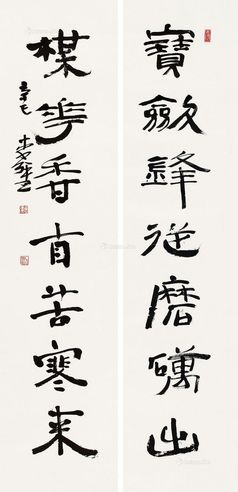 寶劍鋒從磨礪出
楳華香自苦寒來